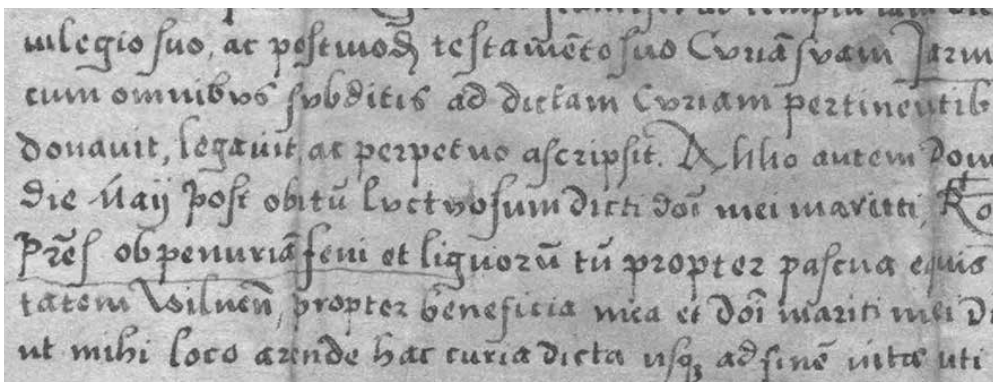 uilegio suo, ac postmodũ testamẽto suo Curiã suam Jarm
cum omnibus subditis ad dictam Curiam pertinentib
donauit, legauit, ac perpetuo ascripsit. Anno autem Dom
die Maij post obitũ luctuosum dicti doĩ mei maritti, Ro
Prẽs ob penuriã feni et lignorũ tũ propter pascua equis
tatem Wilneñ, propter beneficia mea et doĩ mariti mei Di
ut mihi loco arende hac curia dicta usq; ad finẽ uitæ uti